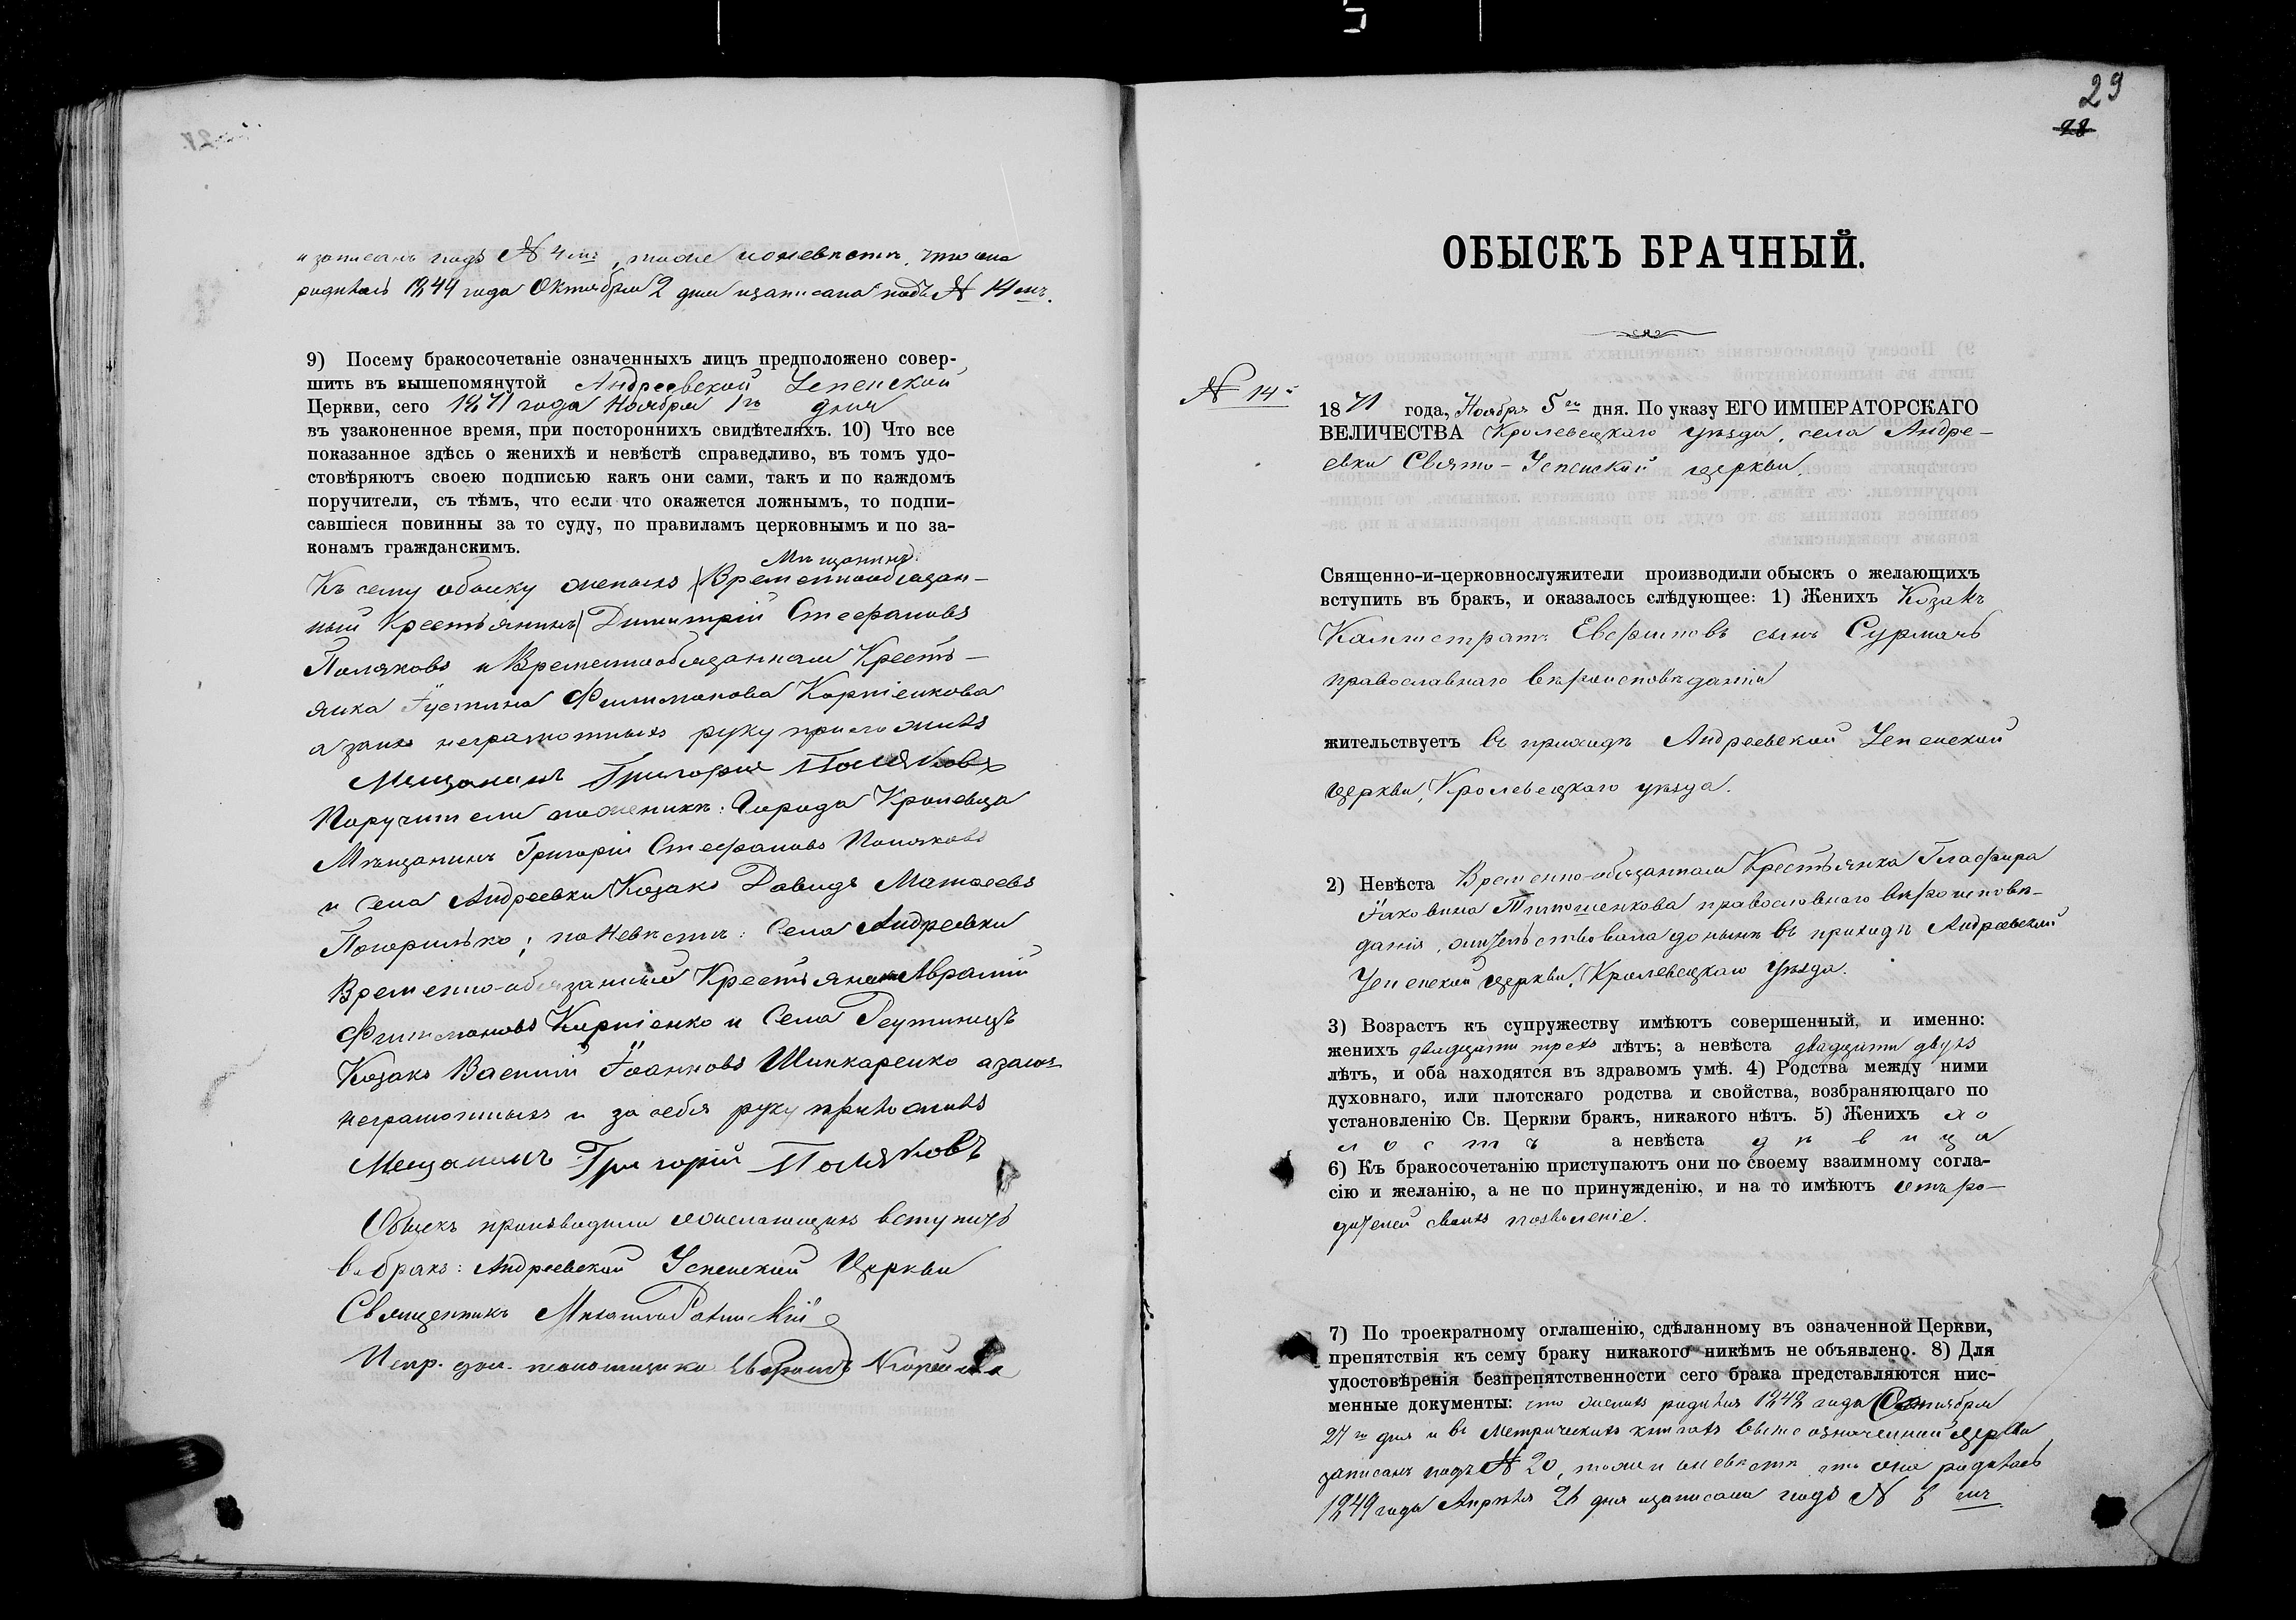 и записанъ подъ № 4мъ, также и о невѣстѣ, что она
родилась 1849 года Октября 2 дня и записана подъ № 14мъ.
9) Посему бракосочетаніе означенныхъ лицъ предположено совер-
шить въ вышепомянутой Андреевской Успенской
Церкви, сего 1871 года Ноября 1го дня
въ узаконенное время, при постороннихъ свидѣтеляхъ. 10) Что все
показанное здѣсь о женихѣ и невѣстѣ справедливо, въ томъ удо-
стовѣряютъ своею подписью какъ они сами, такъ и по каждомъ
поручители, съ тѣмъ, что если что окажется ложнымъ, то подпи-
савшіеся повинны за то суду, по правиламъ церковнымъ и по за-
конамъ гражданскимъ.
Мѣщанинъ
Къ сему обыску женихъ (Временнообязан-
ный Крестьянинъ) Димитрій Стефановъ
Поляковъ и Временнообязанная Кресть-
янка Іустина Филимонова Корніенкова
а за нихъ неграмотныхъ руку приложилъ
Мещанинъ Григорій Поляковъ
Поручители по женихѣ: Города Кролевца
Мѣщанинъ Григорій Стефановъ Поляковъ
и Села Андреевки Козакъ Давидъ Матвеевъ
Погорилько; по Невѣстѣ: Села Андреевки
Временно-обязанный Крестьянинъ Аврамій
Филимоновъ Корніенко и Села Реутинецъ
Козакъ Василій Іоанновъ Шинкаренко а за нихъ
неграмотныхъ и за себя руку приложилъ
Мещанинъ Григорій Поляковъ
Обыскъ производили желающихъ вступить
въ бракъ: Андреевской Успенской Церкви
Священникъ Михаилъ
Испр. дол. псаломщика
29
28
ОБЫСКЪ БРАЧНЫЙ.
№ 14й
1871 года, Ноября 5го дня. По указу ЕГО ИМПЕРАТОРСКАГО
ВЕЛИЧЕСТВА Кролевецкаго Уѣзда, села Андре-
евки Свято-Успенской церкви,
Священно-и-церковнослужители производили обыскъ о желающихъ
вступить въ бракъ, и оказалось слѣдующее: 1) Женихъ Козакъ
Калистратъ Евфимовъ сынъ Сурмачъ
православнаго вѣроисповѣданія
жительствуетъ въ приходѣ Андреевской Успенской
церкви, Кролевецкаго уѣзда.
2) Невѣста Временно-обязанная Крестьянка Глафира
Іаковлева Тимошенкова православнаго вѣроисповѣ-
данія, жительствовала до нынѣ въ приходѣ Андреевской
Успенской церкви, Кролевецкаго Уѣзда.
3) Возрастъ къ супружеству имѣютъ совершенный, и именно:
женихъ двадцати трехъ лѣтъ; а невѣста двадцати двухъ
лѣтъ, и оба находятся въ здравомъ умѣ. 4) Родства между ними
духовнаго, или плотскаго родства и свойства, возбраняющаго по
установленію Св. Церкви бракъ, никакого нѣтъ. 5) Женихъ хо
лостъ а невѣста дѣвица
6) Къ бракосочетанію приступаютъ они по своему взаимному согла-
сію и желанію, а не по принужденію, и на то имѣютъ отъ ро-
дителей своихъ позволеніе.
7) По троекратному оглашенію, сдѣланному въ означенной Церкви,
препятствія къ сему браку никакого никѣмъ не объявлено. 8) Для
удостовѣренія безпрепятственности сего брака представляются пис-
менные документы: что женихъ родился 1848 года
27го дня и въ Метрическихъ книгахъ выше означенной церкви
записанъ подъ № 20, также и о невѣстѣ что она родилась
1849 года Апрѣля 26 дня и записана подъ № 8 мъ